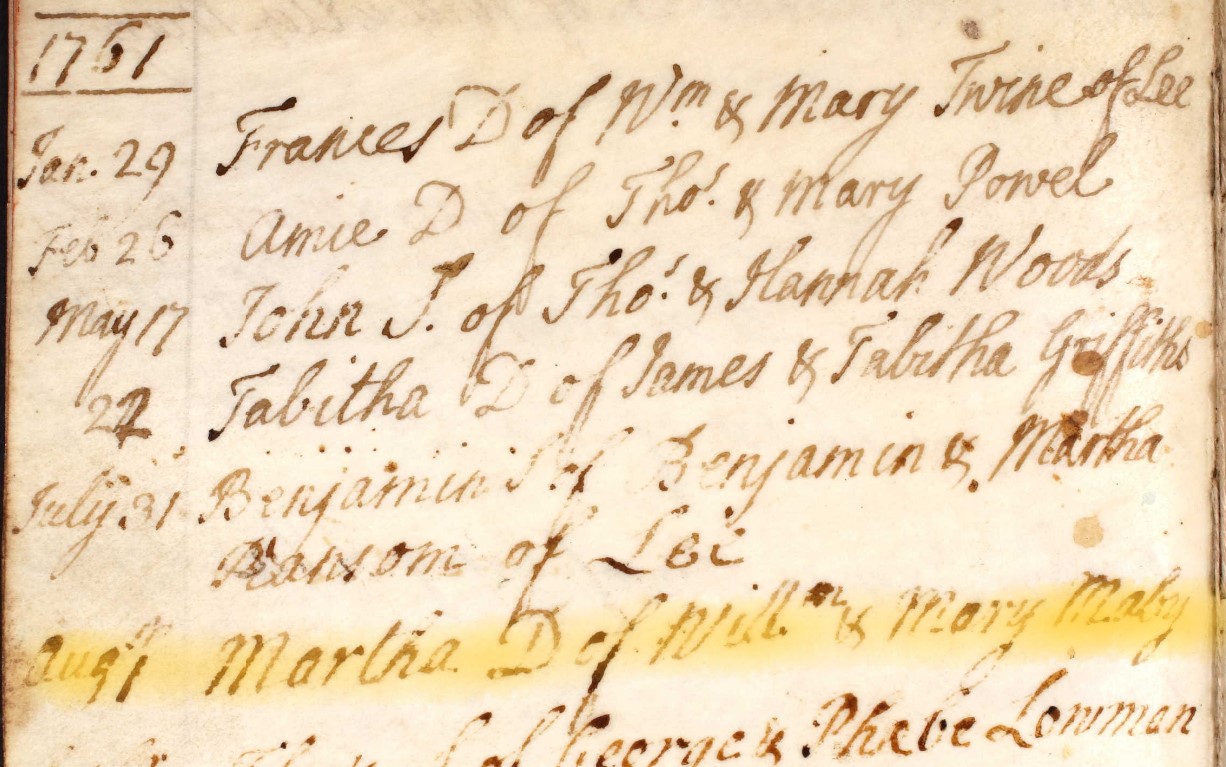 1761
Jan. 29 Frances D of Wm. & Mary Twine of Lee
Feb 26 Amie D of Thos. & Mary Powel
May 17 John S. of Thos. & Hannah Woods
22 Tabitha D of James & Tabitha Griffiths
July 31 Benjamin S of Benjamin & Martha
Ransom of Lee
Martha D of Willm & Mary Maby
of George & Phebe Lowman